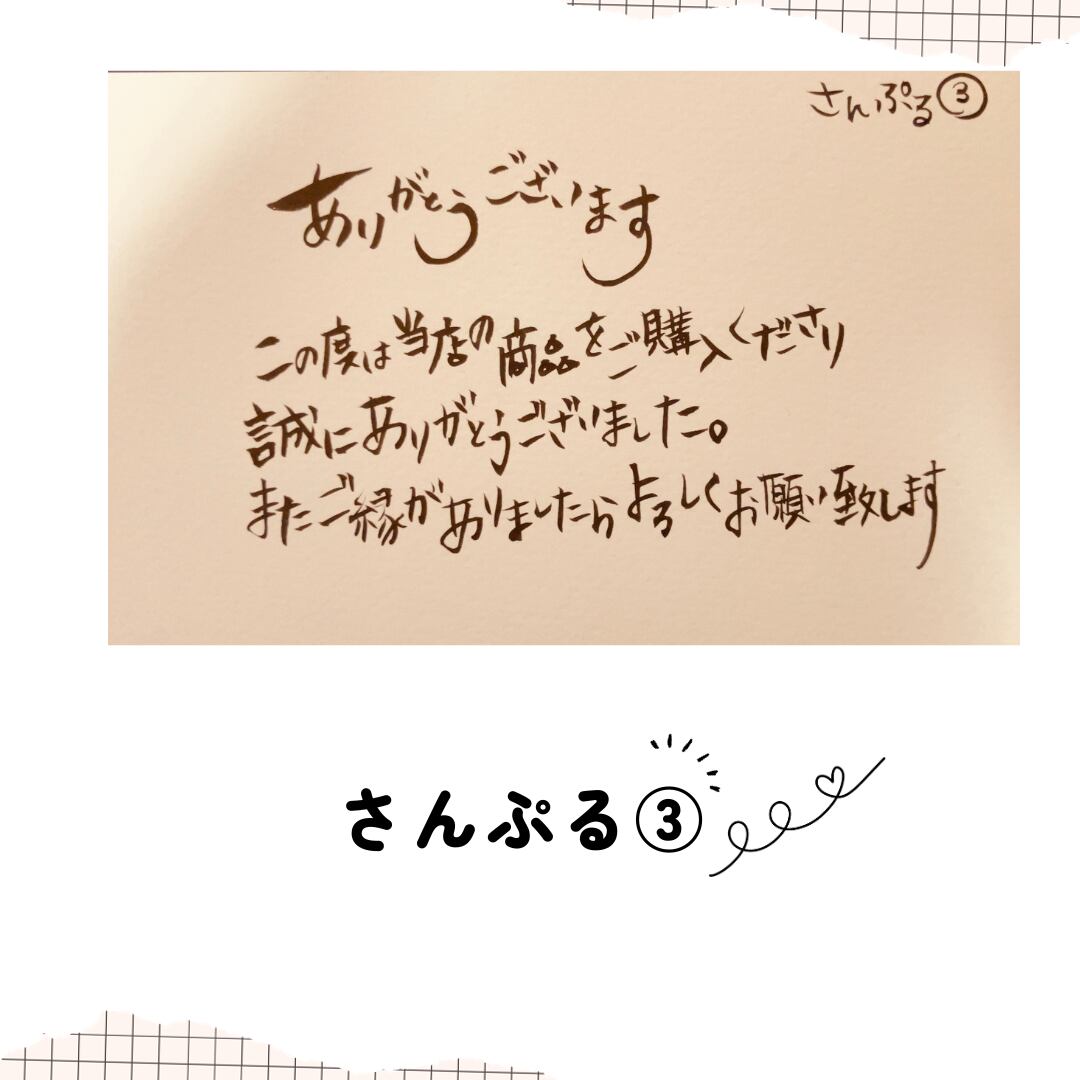 さんぷる③
ありがとうございます
この度は当店の商品をご購入くださり
誠にありがとうございました。
またご縁がありましたらよろしくお願い致します
さんぷる③